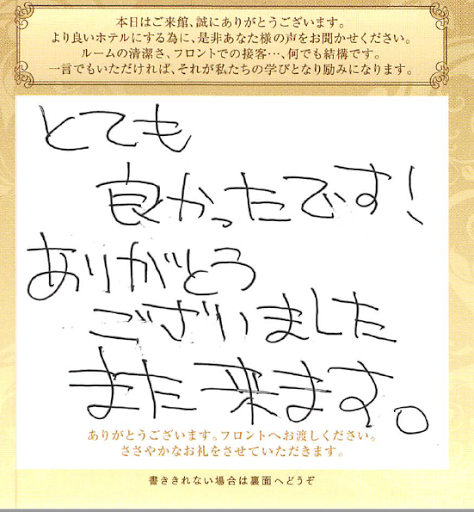 本日はご来館、誠にありがとうございます。
より良いホテルにする為に、是非あなた様の声をお聞かせください。
ルームの清潔さ、フロントでの接客…、何でも結構です。
一言でもいただければ、それが私たちの学びとなり励みになります。
とても
良かったです!
ありがとう
ございました
また来ます。
ありがとうございます。フロントへお渡しください。
ささやかなお礼をさせていただきます。
書ききれない場合は裏面へどうぞ